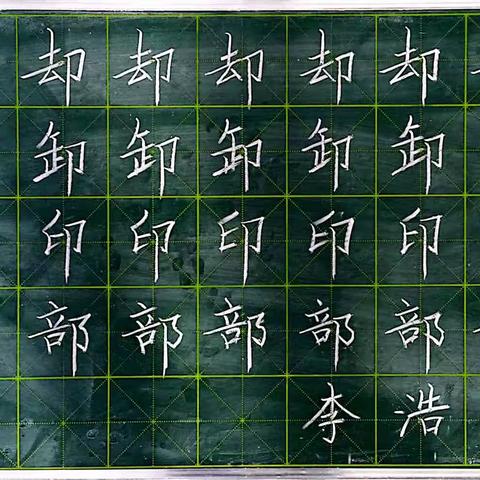 却却却却却
卸卸卸卸卸
印印印印印
部部部部部
李浩